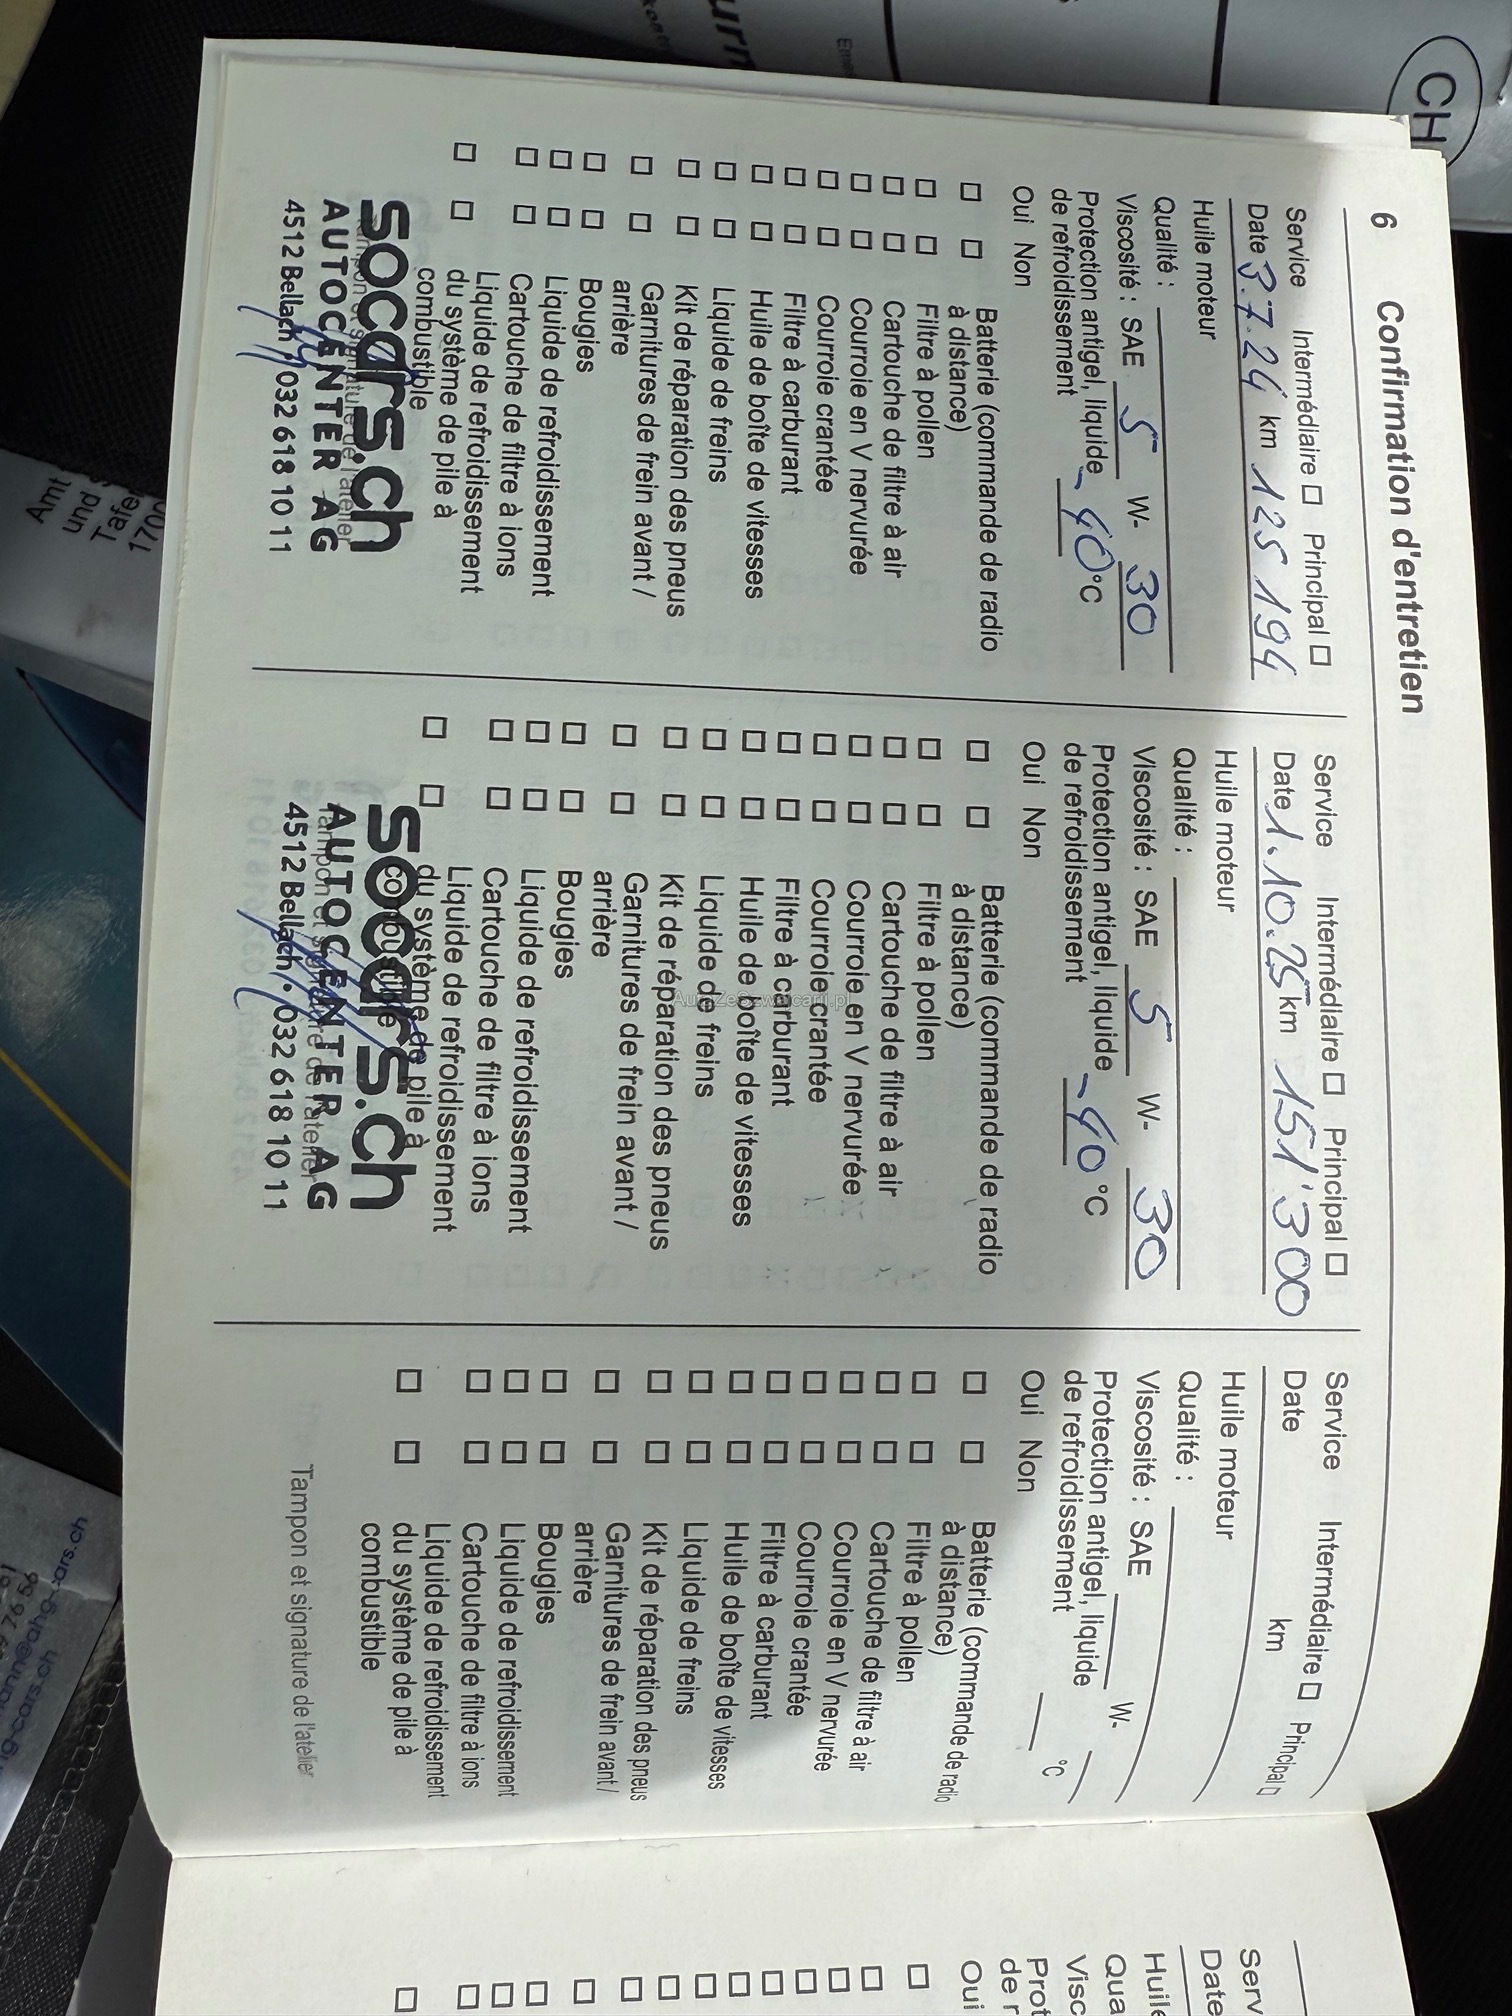 6 Confirmation d'entretien
Service Intermédiaire Principal
Date 3.7.24 km 125 194
Huile moteur
Qualité :
Viscosité : SAE 5 W- 30
Protection antigel, liquide
de refroidissement -40 °C
Oui Non
Batterie (commande de radio
à distance)
Filtre à pollen
Cartouche de filtre à air
Courroie en V nervurée
Courroie crantée
Filtre à carburant
Huile de boîte de vitesses
Liquide de freins
Kit de réparation des pneus
Garnitures de frein avant /
arrière
Bougies
Liquide de refroidissement
Cartouche de filtre à ions
Liquide de refroidissement
du système de pile à
combustible
socars.ch
Tampon et signature de l'atelier
AUTOCENTER AG
4512 Bellach • 032 618 10 11
Service Intermédiaire Principal
Date 1.10.25 km 151'300
Huile moteur
Qualité :
Viscosité : SAE 5 W- 30
Protection antigel, liquide
de refroidissement -40 °C
Oui Non
Batterie (commande de radio
à distance)
Filtre à pollen
Cartouche de filtre à air
Courroie en V nervurée
Courroie crantée
Filtre à carburant
Huile de boîte de vitesses
Liquide de freins
Kit de réparation des pneus
Garnitures de frein avant /
arrière
Bougies
Liquide de refroidissement
Cartouche de filtre à ions
Liquide de refroidissement
du système de pile à
combustible
socars.ch
Tampon et signature de l'atelier
AUTOCENTER AG
4512 Bellach • 032 618 10 11
Service Intermédiaire Principal
Date km
Huile moteur
Qualité :
Viscosité : SAE W-
Protection antigel, liquide
de refroidissement °C
Oui Non
Batterie (commande de radio
à distance)
Filtre à pollen
Cartouche de filtre à air
Courroie en V nervurée
Courroie crantée
Filtre à carburant
Huile de boîte de vitesses
Liquide de freins
Kit de réparation des pneus
Garnitures de frein avant /
arrière
Bougies
Liquide de refroidissement
Cartouche de filtre à ions
Liquide de refroidissement
du système de pile à
combustible
Tampon et signature de l'atelier
Serv
Date
Huile
Qua
Visc
Prot
de r
Oui
CH
Amt
und
Tafe
AutaZeSzwajcarii.pl